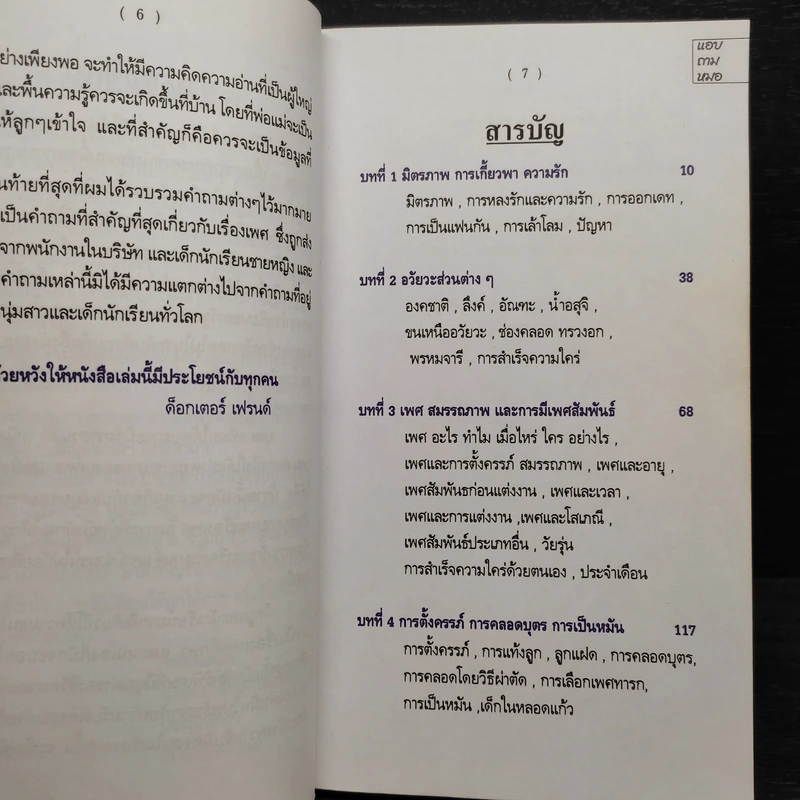 ( 6 )
ย่างเพียงพอ จะทำให้มีความคิดความอ่านที่เป็นผู้ใหญ่
และพื้นความรู้ควรจะเกิดขึ้นที่บ้าน โดยที่พ่อแม่จะเป็น
ห้ลูกๆเข้าใจ และที่สำคัญก็คือควรจะเป็นข้อมูลที่
นท้ายที่สุดที่ผมได้รวบรวมคำถามต่างๆไว้มากมาย
เป็นคำถามที่สำคัญที่สุดเกี่ยวกับเรื่องเพศ ซึ่งถูกส่ง
จากพนักงานในบริษัท และเด็กนักเรียนชายหญิง และ
คำถามเหล่านี้มิได้มีความแตกต่างไปจากคำถามที่อยู่
นุ่มสาวและเด็กนักเรียนทั่วโลก
้วยหวังให้หนังสือเล่มนี้มีประโยชน์กับทุกคน
ด็อกเตอร์ เฟรนด์
แอบ
ถาม
หมอ
( 7 )
สารบัญ
บทที่ 1 มิตรภาพ การเกี้ยวพา ความรัก 10
มิตรภาพ , การหลงรักและความรัก , การออกเดท ,
การเป็นแฟนกัน , การเล้าโลม , ปัญหา
บทที่ 2 อวัยวะส่วนต่าง ๆ 38
องคชาติ , ลึงค์ , อัณฑะ , น้ำอสุจิ ,
ขนเหนืออวัยวะ , ช่องคลอด ทรวงอก ,
พรหมจารี , การสำเร็จความใคร่
บทที่ 3 เพศ สมรรถภาพ และการมีเพศสัมพันธ์ 68
เพศ อะไร ทำไม เมื่อไหร่ ใคร อย่างไร ,
เพศและการตั้งครรภ์ สมรรถภาพ , เพศและอายุ ,
เพศสัมพันธก่อนแต่งงาน , เพศและเวลา ,
เพศและการแต่งงาน ,เพศและโสเภณี ,
เพศสัมพันธ์ประเภทอื่น , วัยรุ่น
การสำเร็จความใคร่ด้วยตนเอง , ประจำเดือน
บทที่ 4 การตั้งครรภ์ การคลอดบุตร การเป็นหมัน 117
การตั้งครรภ์ , การแท้งลูก , ลูกแฝด , การคลอดบุตร,
การคลอดโดยวิธีผ่าตัด , การเลือกเพศทารก,
การเป็นหมัน ,เด็กในหลอดแก้ว